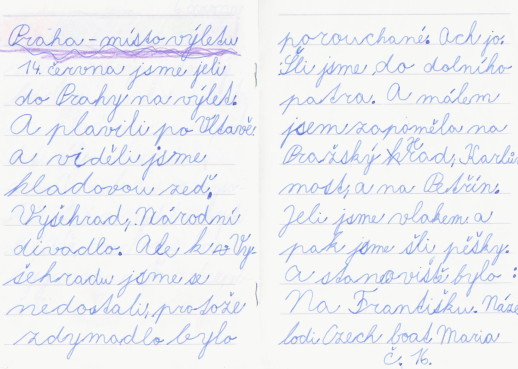 Praha - místo výletu
14. června jsme jeli
do Prahy na výlet.
A plavili po Vltavě
a viděli jsme
hladovou zeď,
Vyšehrad, Národní
divadlo. Ale k Vy-
šehradu jsme se
nedostali, protože
zdymadlo bylo
porouchané. Ach jo.
Šli jsme do dolního
patra. A málem
jsem zapoměla na
Pražský hrad, Karlův
most, a na Petřín.
Jeli jsme vlakem a
pak jsme šli pěšky.
A stanoviště bylo:
Na Františku. Náze
lodi Czech boat Maria
č. 16.